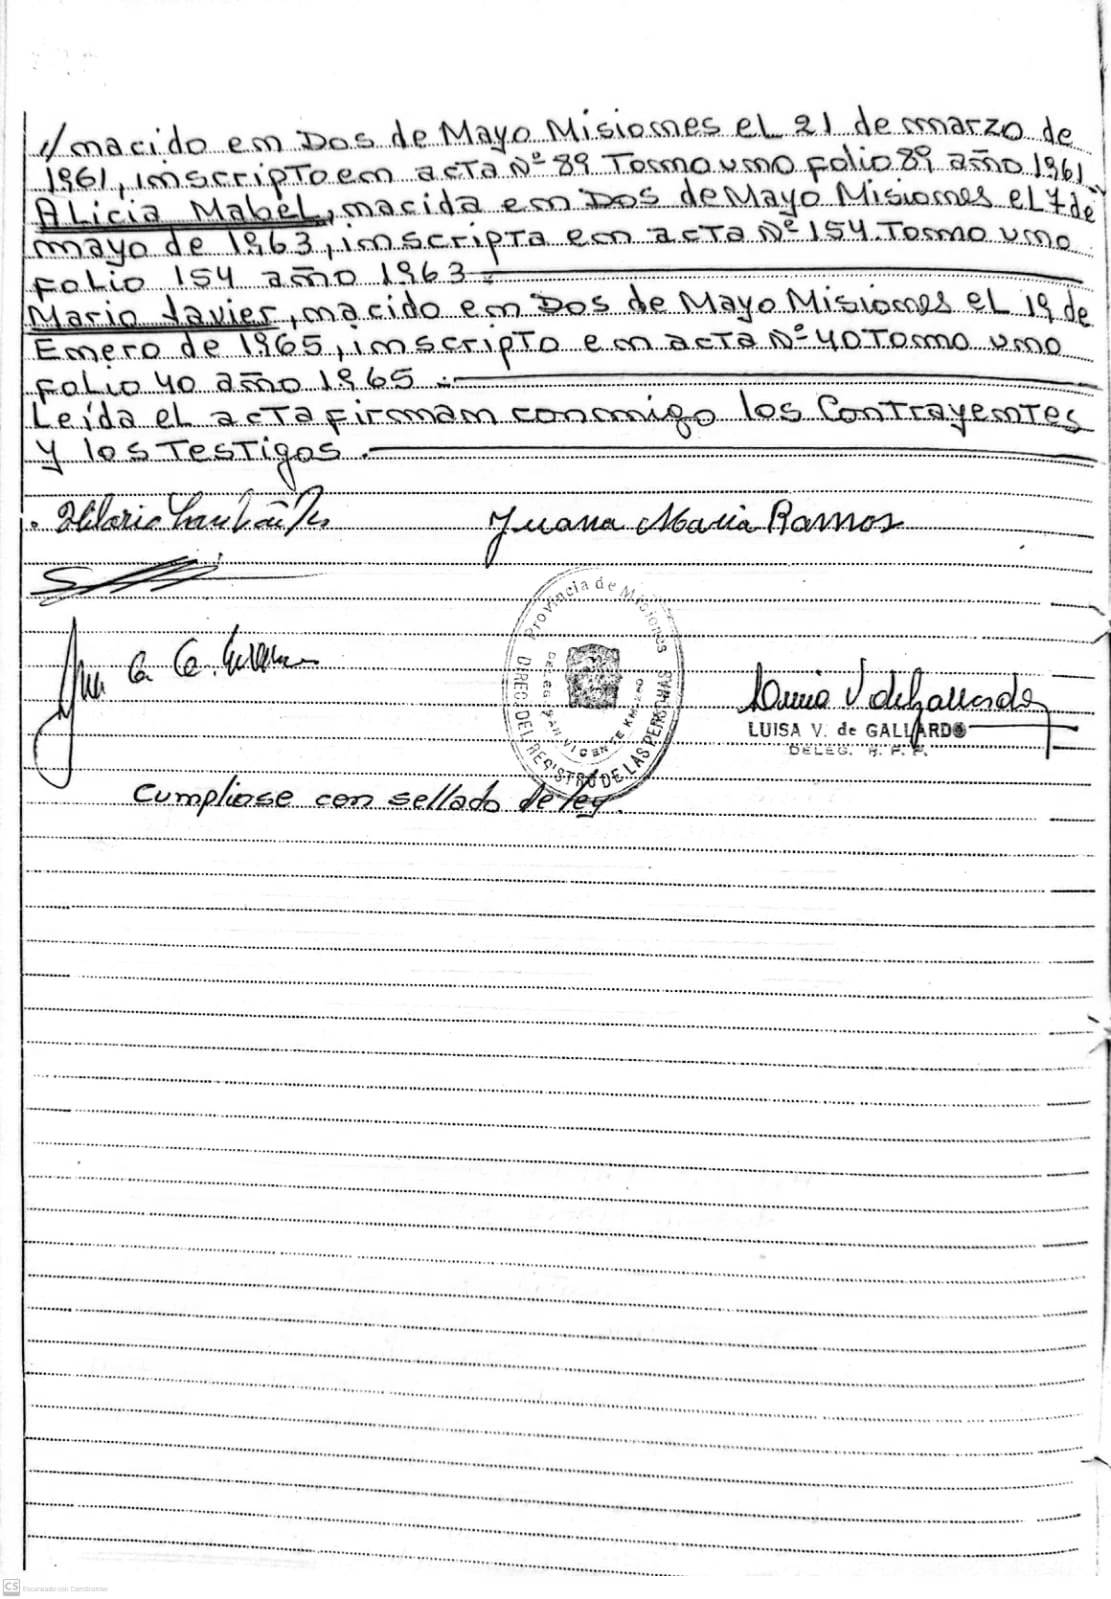 // nacido en Dos de Mayo Misiones el 21 de marzo de
1961, inscripto en acta Nº 89 Tomo uno folio 89 año 1961
Alicia Mabel, nacida en Dos de Mayo Misiones el 7 de
mayo de 1963, inscripta en acta Nº 154. Tomo uno
folio 154 año 1963.-
Mario Javier, nacido en Dos de Mayo Misiones el 19 de
Enero de 1965, inscripto en acta Nº 40 Tomo uno
folio 40 año 1965.-
Leída el acta firman conmigo los Contrayentes
y los testigos.
Juana Maria Ramos
Provincia de Misiones
DIREC. DEL REGISTRO DE LAS PERSONAS
LUISA V. de GALLARDO
DELEG. R. P. P.
Cumpliose con sellado de ley.
CS Escaneado con CamScanner